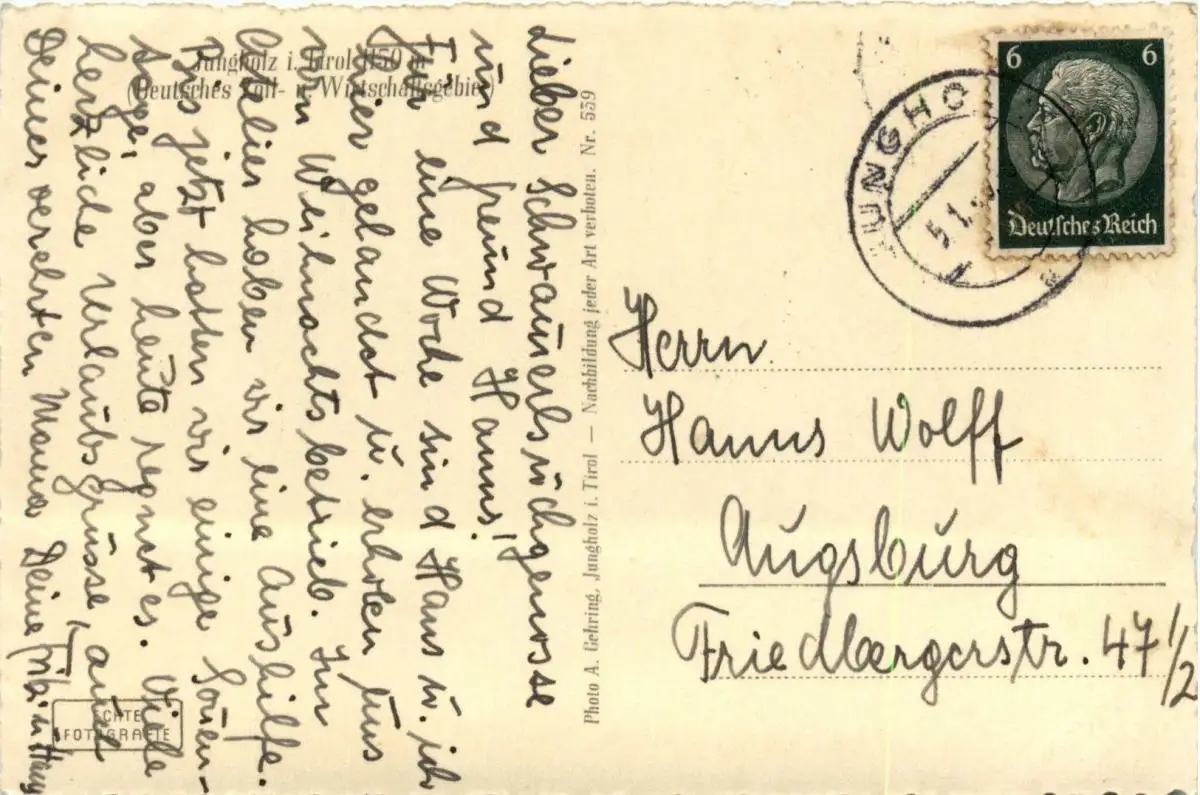 Jungholz i. Tirol 1150 m
(Deutsches Zoll- u. Wirtschaftsgebiet)
Lieber Schwam̄erlsuchgenosse
und Freund Hanns!
Für eine Woche sind Hans u. ich
hier gelandet u. erholen uns
vom Weihnachtsbetrieb. Im
Atelier haben wir eine Aushilfe.
Bis jetzt hatten wir einige Son̄en-
tage, aber heute regnet es. Viele
herzliche Urlaubsgrüsse, auch
Deiner verehrten Mama Deine
ECHTE
FOTOGRAFIE
Photo A. Gehring, Jungholz i. Tirol — Nachbildung jeder Art verboten. Nr. 539
6 6
Deutsches Reich
JUNGHO
5.1.
Herrn
Hanns Wolff
Augsburg
Friedbergerstr. 47 1/2